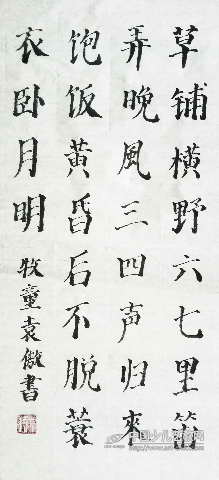 草铺横野六七里笛
弄晚風三四声归來
饱饭黄昏后不脱蓑
衣卧月明
牧童袁傲書